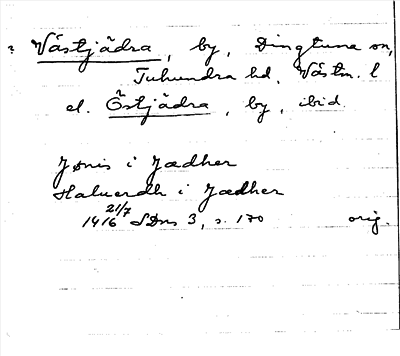 ? Västjädra, by, Dingtuna sn,
Tuhundra hd, Västm. l
el. Östjädra, by, ibid.
Jønis i Jædher
Haluerdh i Jædher
1416 21/7 SDns 3, s. 170 orig.